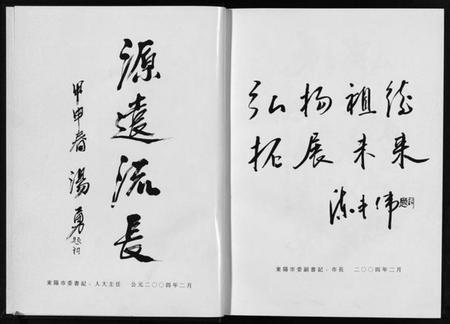 源遠流長
甲申春 湯勇 题词
東陽市委書記、人大主任 公元二〇〇四年二月
弘扬祖德
拓展未来
陈丰伟 题词
東陽市委副書記、市長 二〇〇四年二月